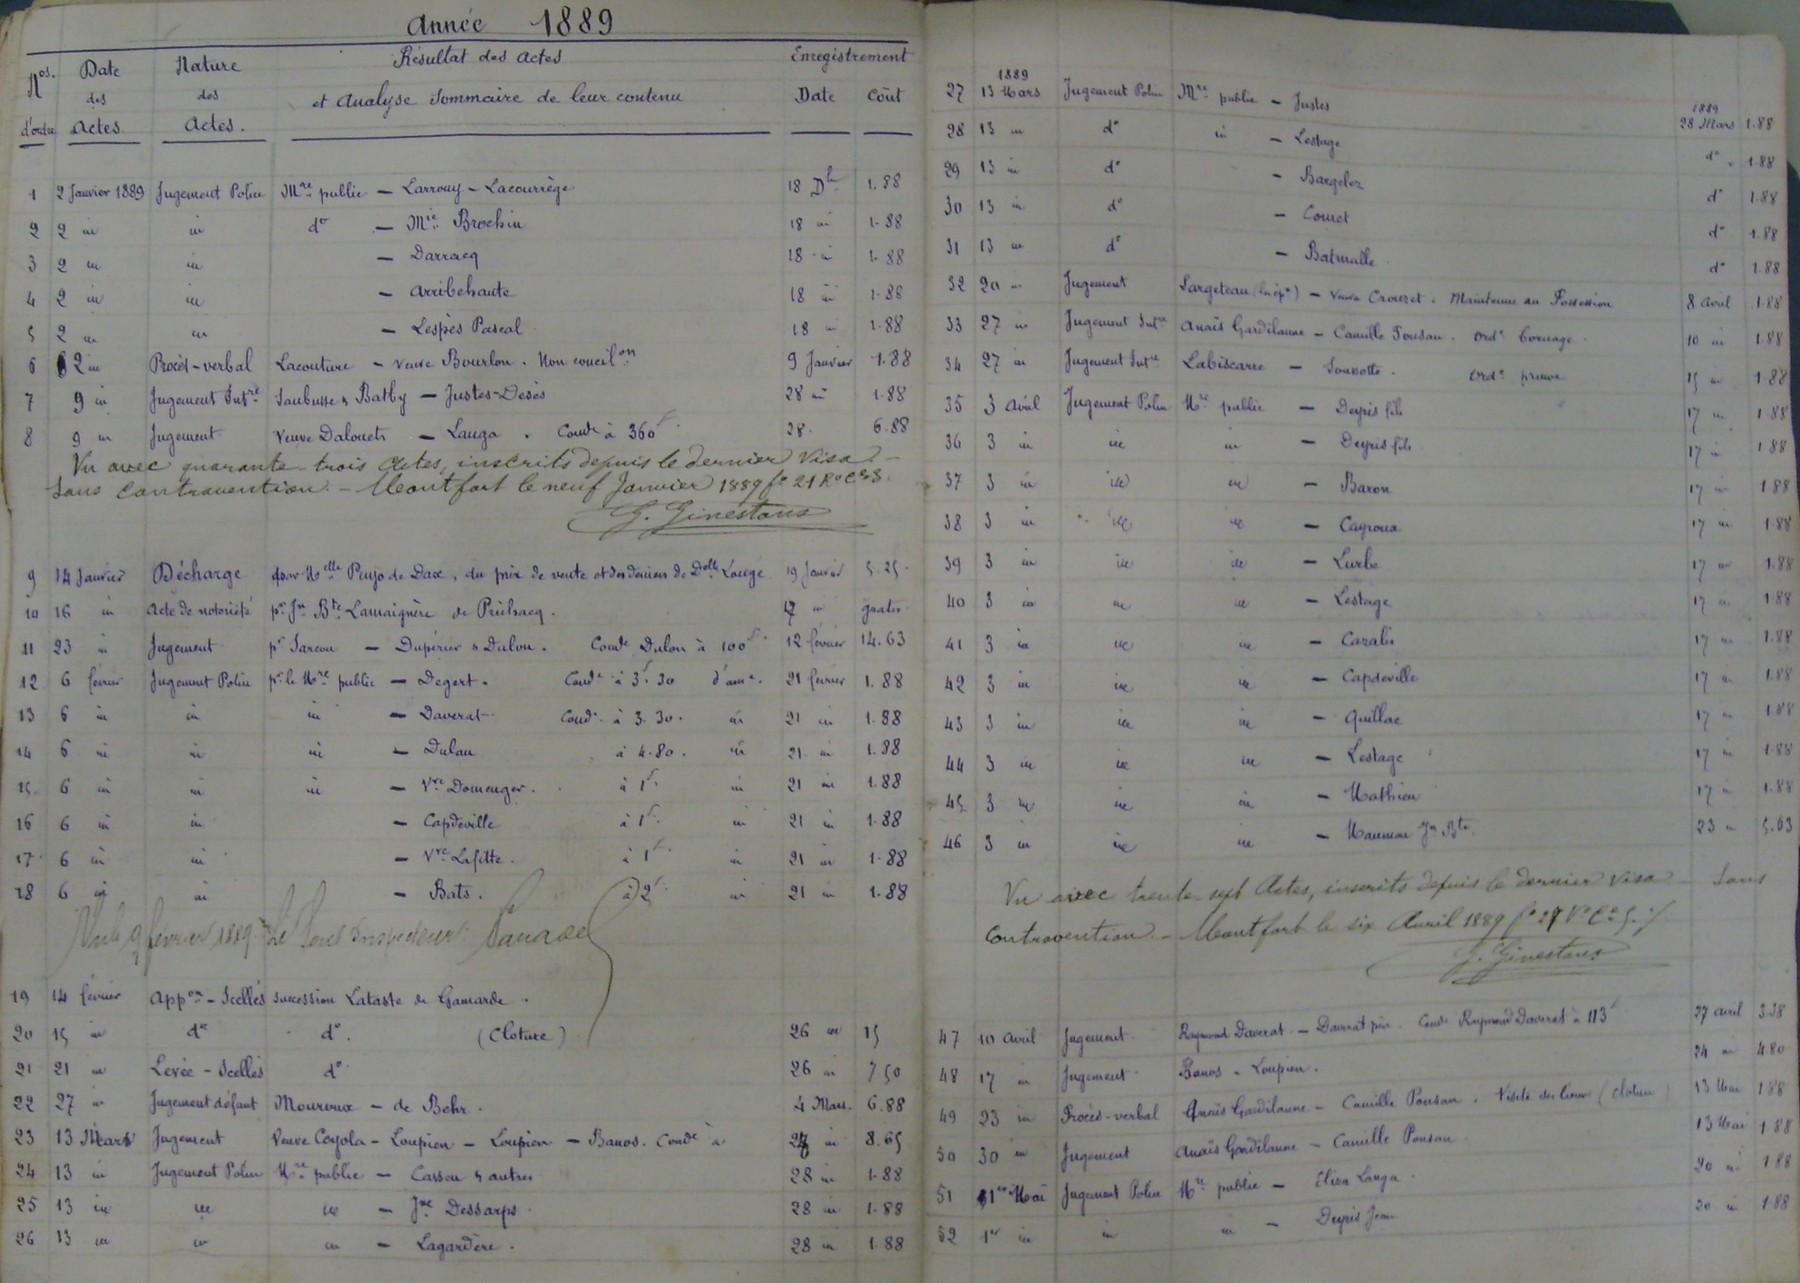 Année 1889
Nos. d'ordre Date des Actes Nature des Actes. Résultat des Actes et Analyse Sommaire de leur contenu Enregistrement Date Coût
1 2 Janvier 1889 Jugement Police Mre public - Larrouy - Lacourrège 18 1.88
2 2 in in do - Mie Brochin 18 in 1.88
3 2 in in - Darracq 18 in 1.88
4 2 in in - Arribehaute 18 in 1.88
5 2 in in - Lespès Pascal 18 in 1.88
6 2 in Procès-verbal Lacouture - veuve Bourlon. Non concilon 9 Janvier 1.88
7 9 in Jugement Intre Saubusse & Batby - Justes-Desès 28 in 1.88
8 9 in Jugement Veuve Dalouet - Lauga. Condé à 360f 28. 6.88
Vu avec quarante-trois Actes, inscrits depuis le dernier Visa. -
Sans Contravention. - Montfort le neuf Janvier 1889 fo 21 Ro
G. Ginestous
9 14 Janvier Décharge Melle Peujo de Dax, du prix de vente et des deniers de Delle 19 Janvier 5.25
10 16 in Acte de notoriété pr Jn Bte Lamaignère de Préchacq. 17 in gratis
11 23 in Jugement pr Sarcou - Dupérier & Dulon. Condé Dulon à 100f 12 février 14.63
12 6 février Jugement Police pr le Mre public - Degert. Condé à 3f.30 d'ame. 21 février 1.88
13 6 in in in - Daverat Condé à 3.30. in 21 in 1.88
14 6 in in in - Dulau à 4.80. in 21 in 1.88
15 6 in in in - Vve Domenger. à 1f in 21 in 1.88
16 6 in in - Capdeville à 1f. in 21 in 1.88
17 6 in in - Vve Lafitte. à 1f. in 21 in 1.88
18 6 in in - Bats. à 2f. in 21 in 1.88
Vu le 9 février 1889 Le Sous Inspecteur
19 14 février Appon-Scellés succession Lataste de Gamarde.
20 15 in do do. (Cloture) 26 in 15
21 21 in Levée-Scellés do 26 in 7.50
22 27 in Jugement défaut Mouroux - de Behr. 4 Mars. 6.88
23 13 Mars Jugement Veuve Coyola - Loupien - Loupien - Banos. Condé à 28 in 8.65
24 13 in Jugement Police Mre public - Cassou & autres 28 in 1.88
25 13 in in in - Jne Dessarps. 28 in 1.88
26 13 in in in - Lagardère. 28 in 1.88
27 1889 13 Mars Jugement Police Mre public - Justes 1889 28 Mars 1.88
28 13 in do in - Lestage do 1.88
29 13 in do - Bargelez do 1.88
30 13 in do - Comet do 1.88
31 13 in do - Batmalle. do 1.88
32 20 in Jugement Sargeteau - veuve Crouzet. Maintenue en Possession 8 Avril 1.88
33 27 in Jugement Intre Anaïs Gardilanne - Camille Pousan. Ordt bornage. 10 in 1.88
34 27 in Jugement Intre Labiscarre - Soussotte. Ordt preuve 15 in 1.88
35 3 Avril Jugement Police Mre public - Deyris fils 17 in 1.88
36 3 in in in - Deyris fils 17 in 1.88
37 3 in in in - Baron 17 in 1.88
38 3 in in in - Cayroux 17 in 1.88
39 3 in in in - Lurbe 17 in 1.88
40 3 in in in - Lestage 17 in 1.88
41 3 in in in - Cazalis 17 in 1.88
42 3 in in in - Capdeville 17 in 1.88
43 3 in in in - Quillac 17 in 1.88
44 3 in in in - Lestage 17 in 1.88
45 3 in in in - Mathieu 17 in 1.88
46 3 in in in - Maumen Jn Bte. 23 in 5.63
Vu avec trente-sept Actes, inscrits depuis le dernier Visa Sans
Contravention. - Montfort le six Avril 1889 fo 27 Vo Ce 5.
G. Ginestous
47 10 Avril Jugement Raymond Daverat - Daverat père. Condé Raymond Daverat à 113f 27 Avril 3.38
48 17 in Jugement Banos - Loupien. 24 in 4.80
49 23 in Procès-verbal Anaïs Gardilanne - Camille Pousan. Visite des lieux (cloture) 13 Mai 1.88
50 30 in Jugement Anaïs Gardilanne - Camille Pousan. 13 Mai 1.88
51 1er Mai Jugement Police Mre public - Eliza Lauga. 20 in 1.88
52 1er in in in - Deyris Jean 20 in 1.88